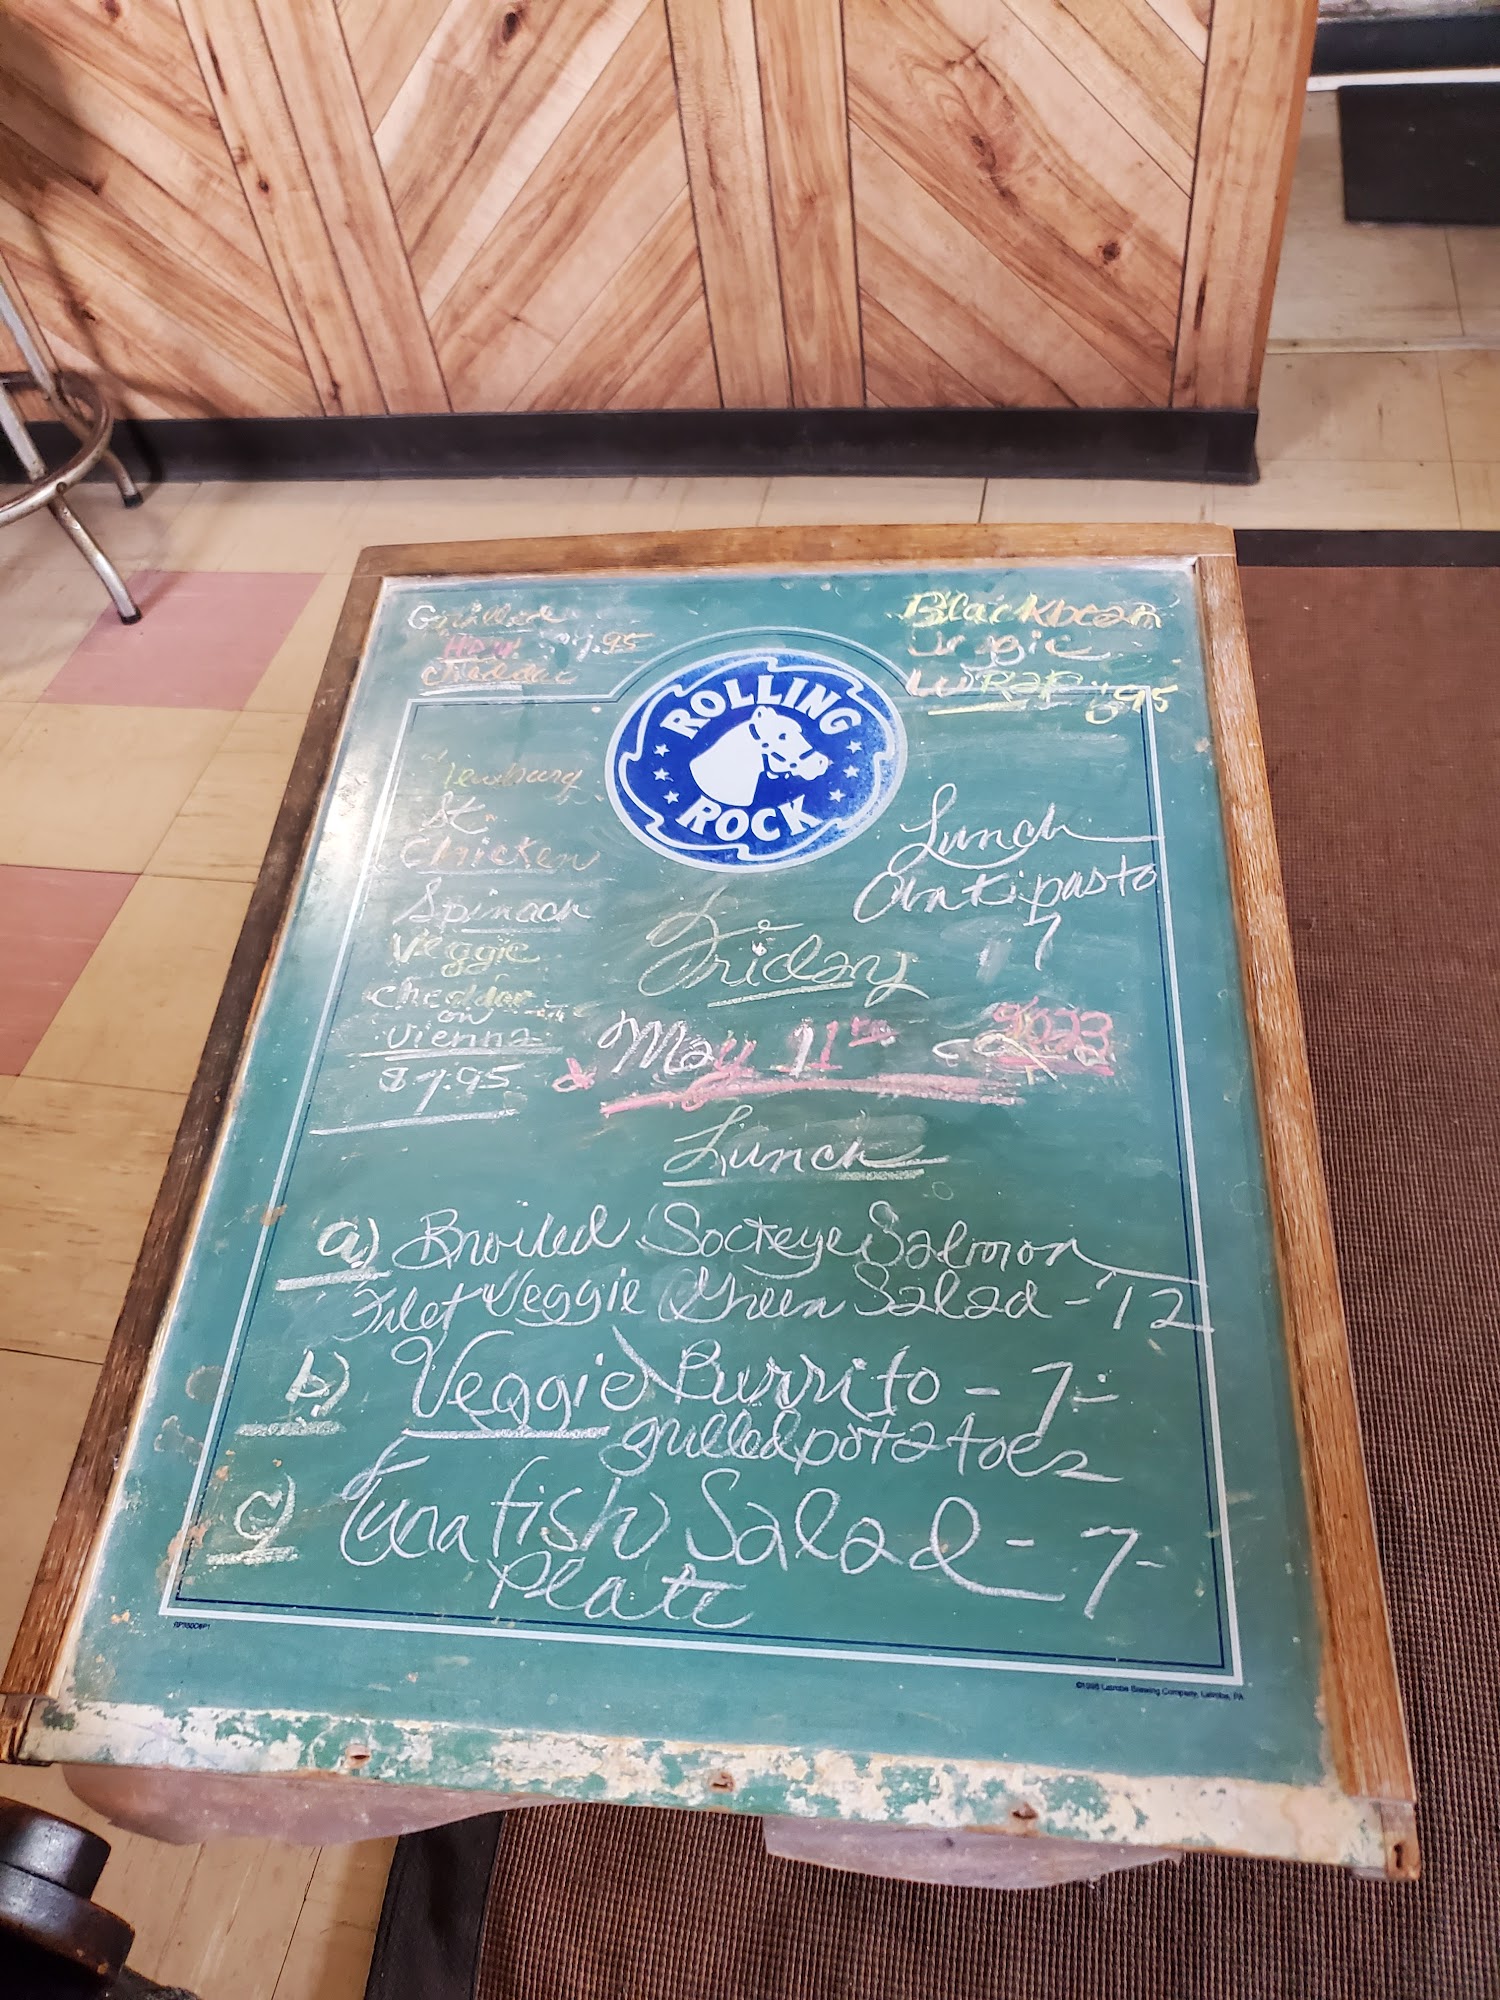 Grilled
.95
Cheddar
Blackbean
Veggie
Wrap 8.95
ROLLING
ROCK
Newburg
St.
Chicken
Spinach
Veggie
cheddar
on
Vienna
$7.95
Lunch
Antipasto
7
Friday
May 11th 2023
Lunch
a) Broiled Sockeye Salmon
Filet Veggie Green Salad - 12
b) Veggie Burrito - 7-
grilled potatoes
c) Tuna fish Salad - 7-
Plate
©1998 Latrobe Brewing Company, Latrobe, PA